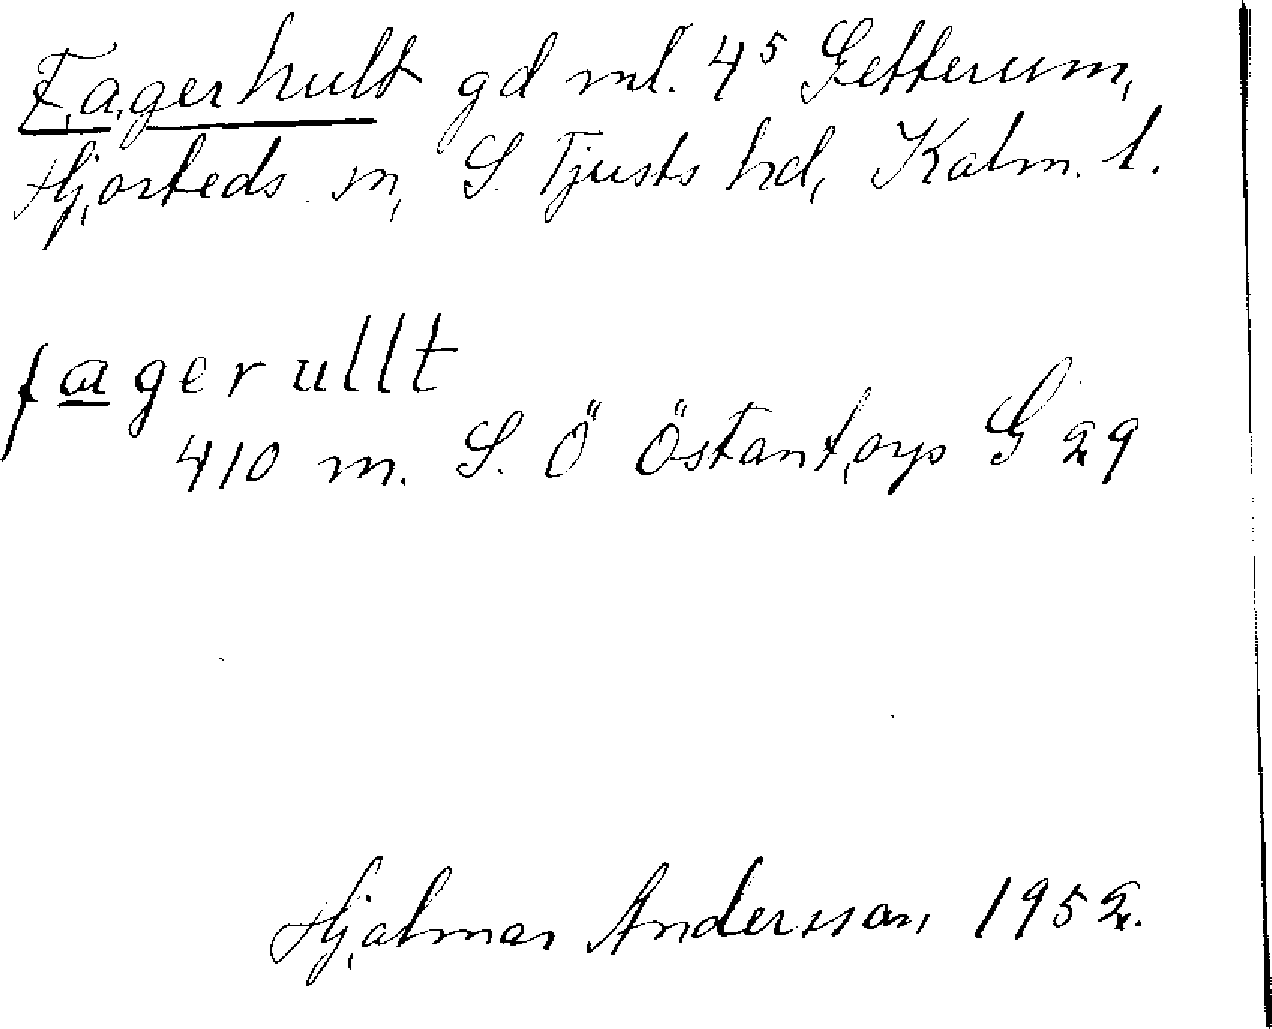 Fagerhult gd ml. 4⁵ Getterum,
Hjorteds sn, S. Tjusts hd, Kalm. l.
fagerullt
410 m. S. Ö Östantorp G 29
Hjalmar Andersson 1952.